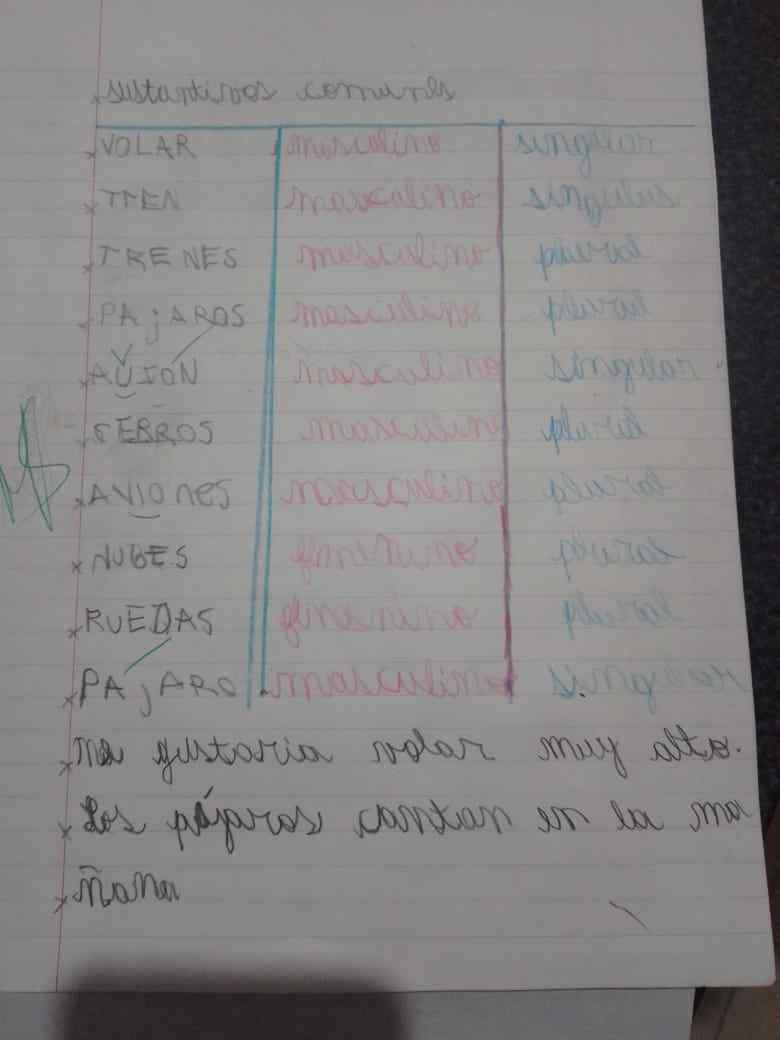 sustantivos comunes
VOLAR masculino singular
TREN masculino singular
TRENES masculino plural
PAjAROS masculino plural
AVIÓN masculino singular
masculino plural
AVIOnES masculino plural
NUBES plural
RUEDAS plural
PAjARO masculino singular
me gustaria volar muy alto.
Los págaros cantan en la ma
ñana